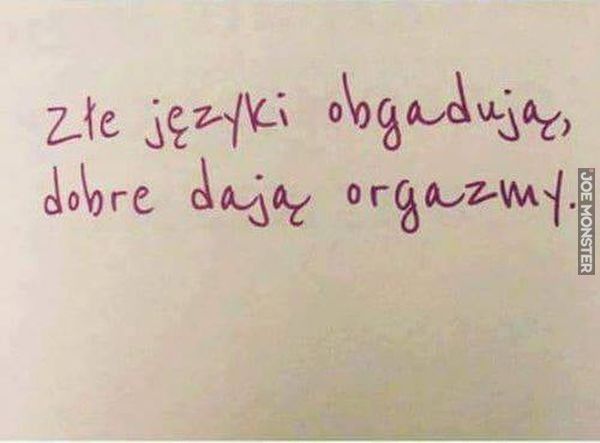 złe języki obgadują,
dobre dają orgazmy.
JOE MONSTER